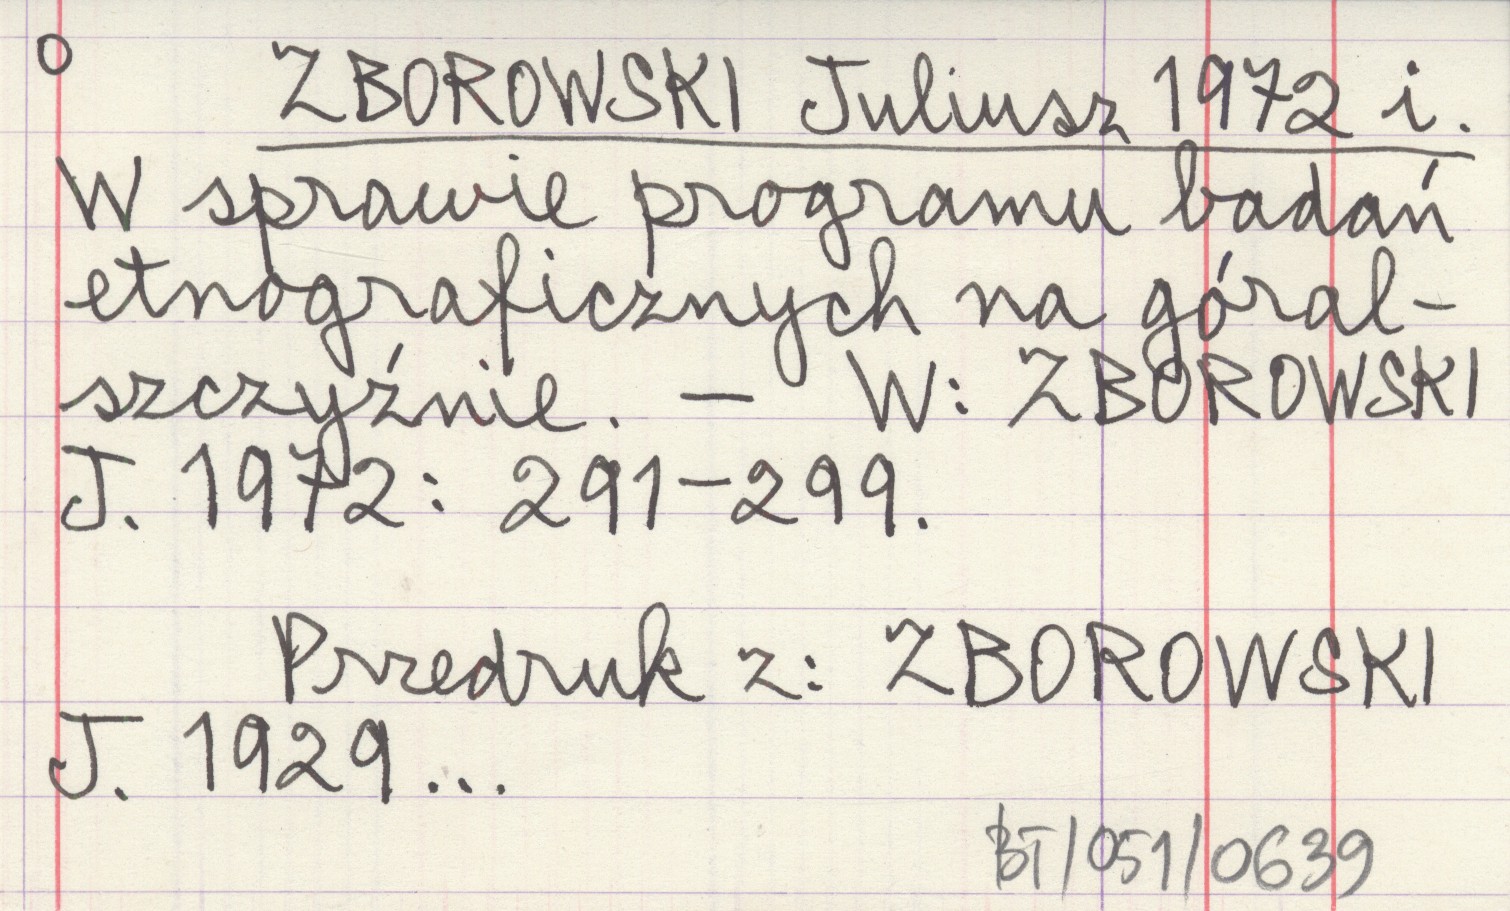 O
ZBOROWSKI Juliusz 1972 i.
W sprawie programu badań
etnograficznych na góral-
szczyźnie. — W: ZBOROWSKI
J. 1972: 291-299.
Przedruk z: ZBOROWSKI
J. 1929...
BT/051/0639